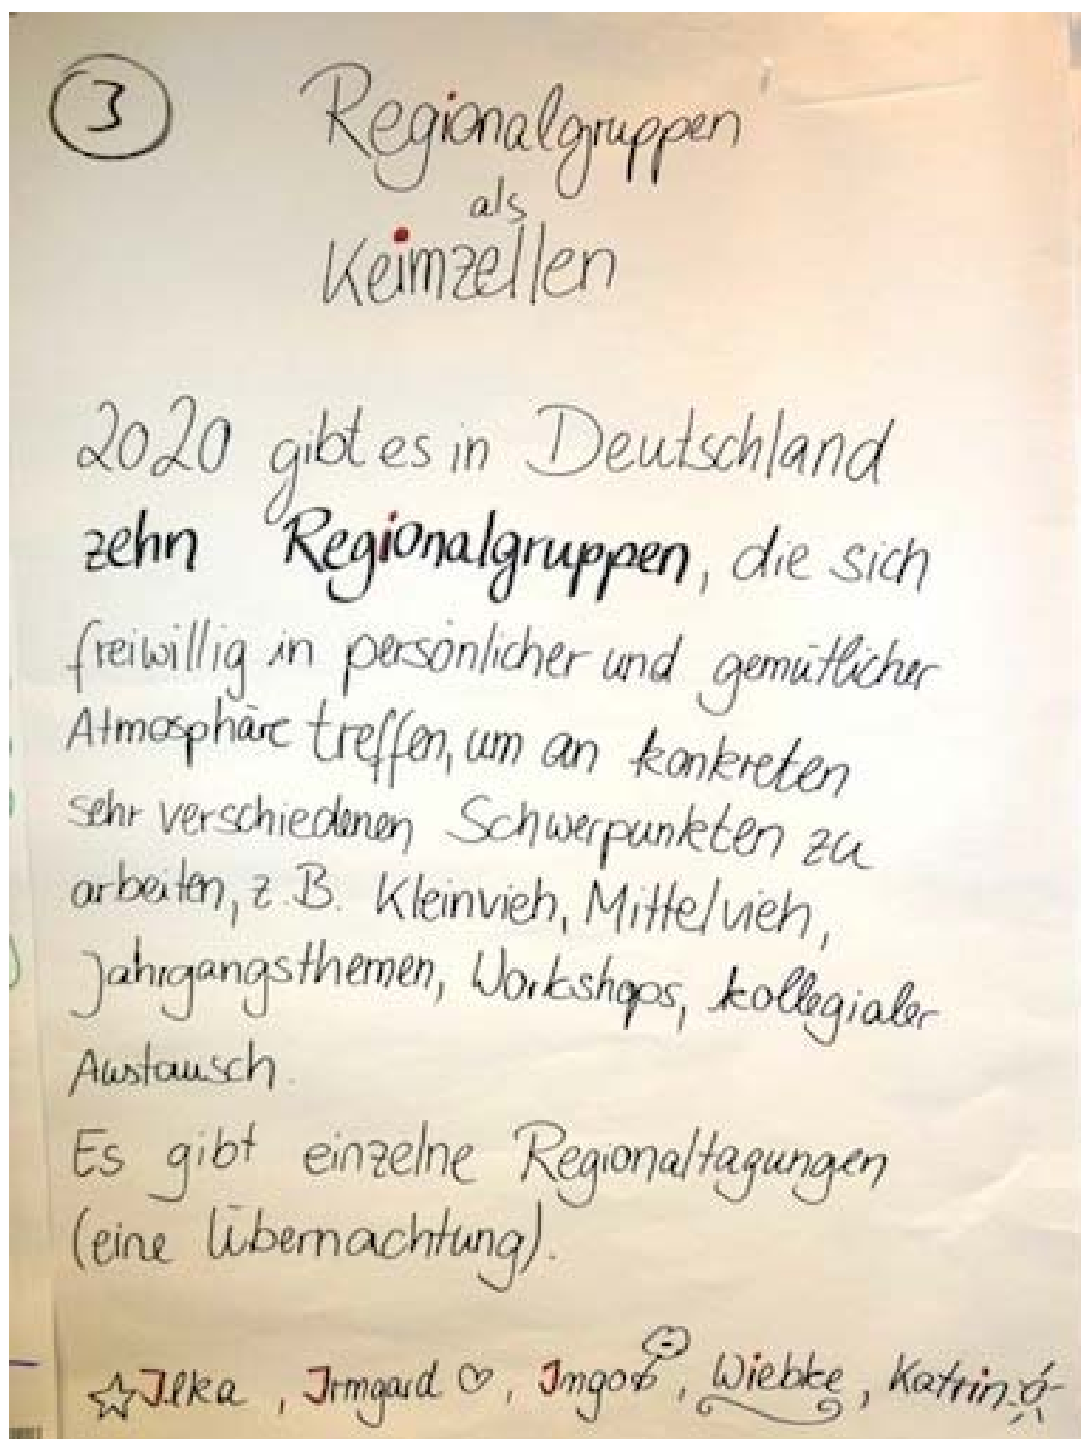 3
Regionalgruppen
als
Keimzellen
2020 gibt es in Deutschland
zehn Regionalgruppen, die sich
freiwillig in persönlicher und gemütlicher
Atmosphäre treffen, um an konkreten
sehr verschiedenen Schwerpunkten zu
arbeiten, z.B. Kleinvieh, Mittelvieh,
Jahrgangsthemen, Workshops, kollegialer
Austausch.
Es gibt einzelne Regionaltagungen
(eine Übernachtung).
Ilka, Irmgard, Imgo, Wiebke, Katrin